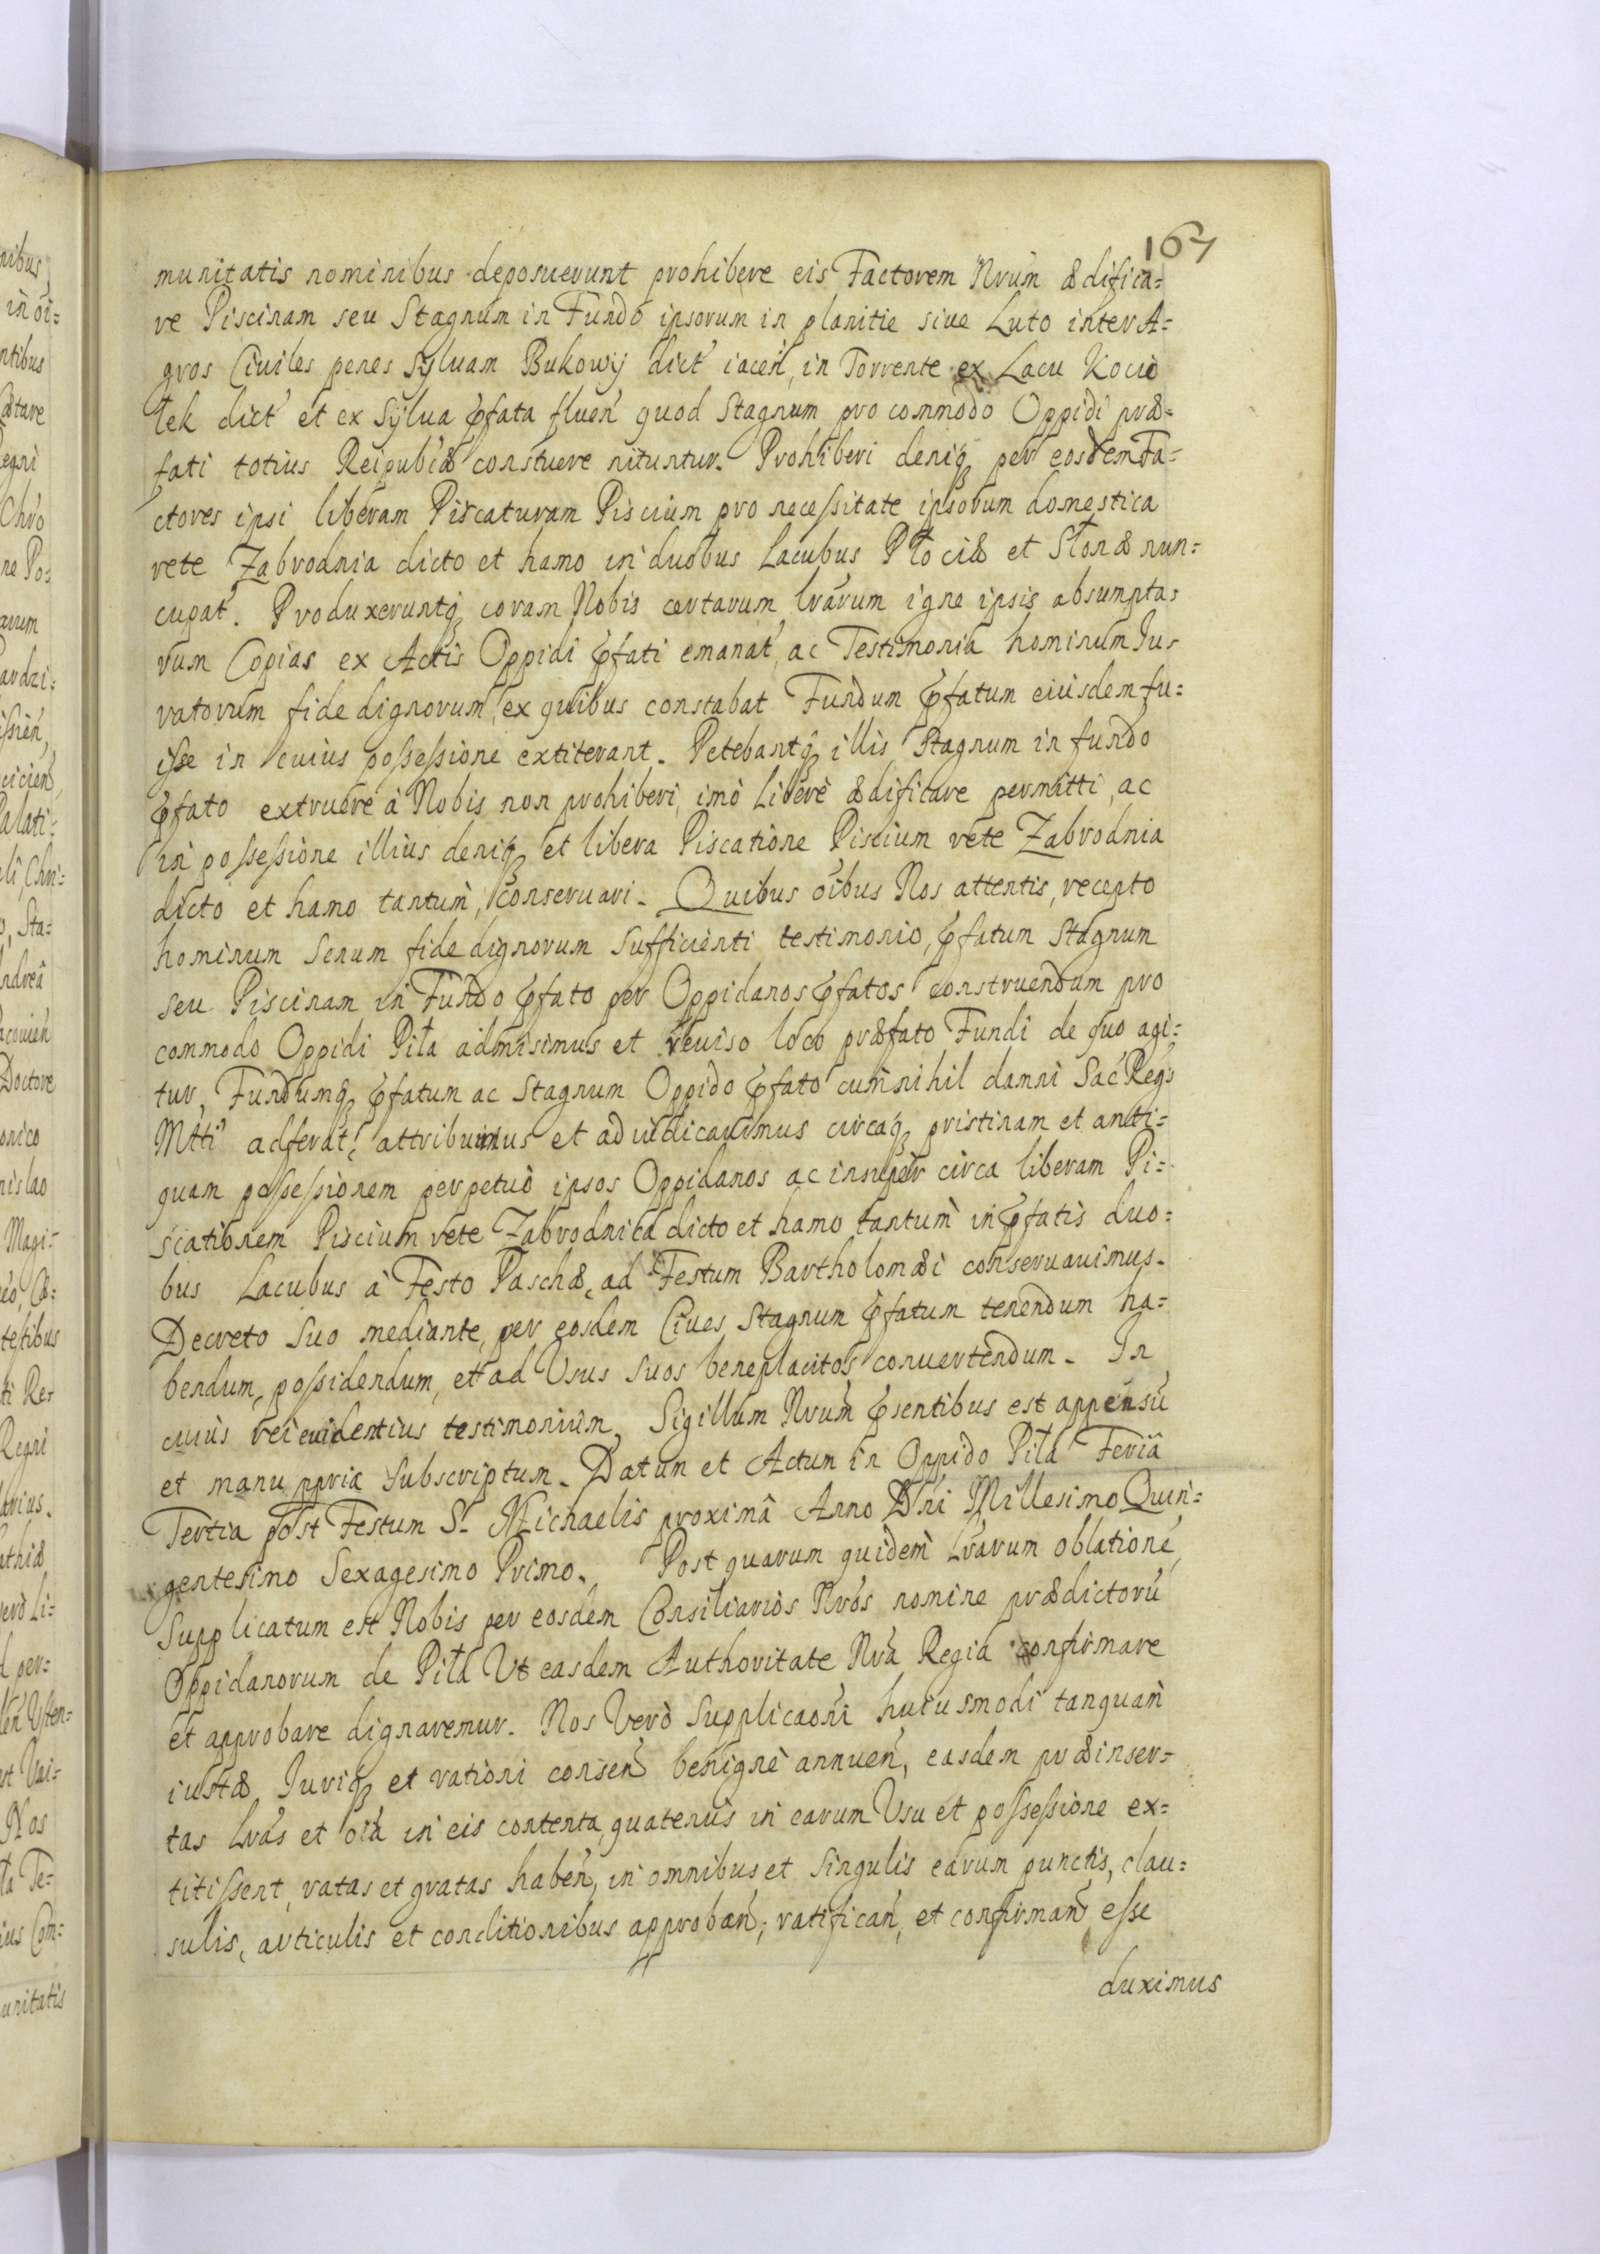 167
munitatis nominibus deposuerunt prohibere eis Factorem Nrum ædifica=
re Piscinam seu Stagnum in Fundo ipsorum in planitie siue Luto inter A=
gros Ciuiles penes Syluam Bukowy dict iacen, in Torrente ex Lacu Kocio
łek dict et ex Sylua pfata fluen quod Stagnum pro commodo Oppidi præ=
fati totius Reipubæ constuere nituntur. Prohiberi deniq per eosdem Fa=
ctores ipsi liberam Piscaturam Piscium pro necessitate ipsorum domestica
rete Zabrodnia dicto et hamo in duobus Lacubus Płociæ et Słonæ nun=
cupat. Produxeruntq coram Nobis certarum lrarum igne ipsis absumpta=
rum Copias ex Actis Oppidi pfati emanat, ac Testimonia hominum Ju=
ratorum fide dignorum, ex quibus constabat Fundum pfatum eiusdem fu=
isse in cuius possessione extiterant. Petebantq illis Stagnum in fundo
pfato extruere à Nobis non prohiberi, imò liberè ædificare permitti, ac
in possessione illius deniq et libera Piscatione Piscium rete Zabrodnia
dicto et hamo tantum, conseruari. Quibus oibus Nos attentis, recepto
hominum Senum fide dignorum sufficienti testimonio, pfatum Stagnum
seu Piscinam in Fundo pfato per Oppidanos pfatos construendum pro
commodo Oppidi Piła admisimus et reuiso loco præfato Fundi de quo agi=
tur, Fundumq pfatum ac Stagnum Oppido pfato cum nihil damni Sac Regs
Mtti adferat, attribuimus et adiudicauimus circaq pristinam et anti=
quam possessionem perpetuò ipsos Oppidanos ac insuper circa liberam Pi=
scationem Piscium rete Zabrodnica dicto et hamo tantum in pfatis duo=
bus Lacubus à Festo Paschæ, ad Festum Bartholomæi conseruauimus.
Decreto Suo mediante, per eosdem Ciues Stagnum pfatum tenendum ha=
bendum, possidendum, et ad Usus suos beneplacitos conuertendum. In
cuius rei euidentius testimonium, Sigillum Nrum psentibus est appensu
et manu ppria subscriptum. Datum et Actum in Oppido Piła Feriâ
Tertia post Festum S. Michaelis proximâ Anno Dni Millesimo Quin=
gentesimo Sexagesimo Primo. Post quarum quidem Lrarum oblatione,
Supplicatum est Nobis per eosdem Consiliarios Nros nomine prædictoru
Oppidanorum de Piła Ut easdem Authoritate Nra Regia confirmare
et approbare dignaremur. Nos Verò Supplicaoni huiusmodi tanquam
iustæ Juriq et rationi consen benignè annuen, easdem præinser=
tas Lras et oia in eis contenta, quatenus in earum Usu et possessione ex=
titissent, ratas et gratas haben, in omnibus et singulis earum punctis, clau=
sulis, articulis et conditionibus approban, ratifican, et confirman esse
duximus